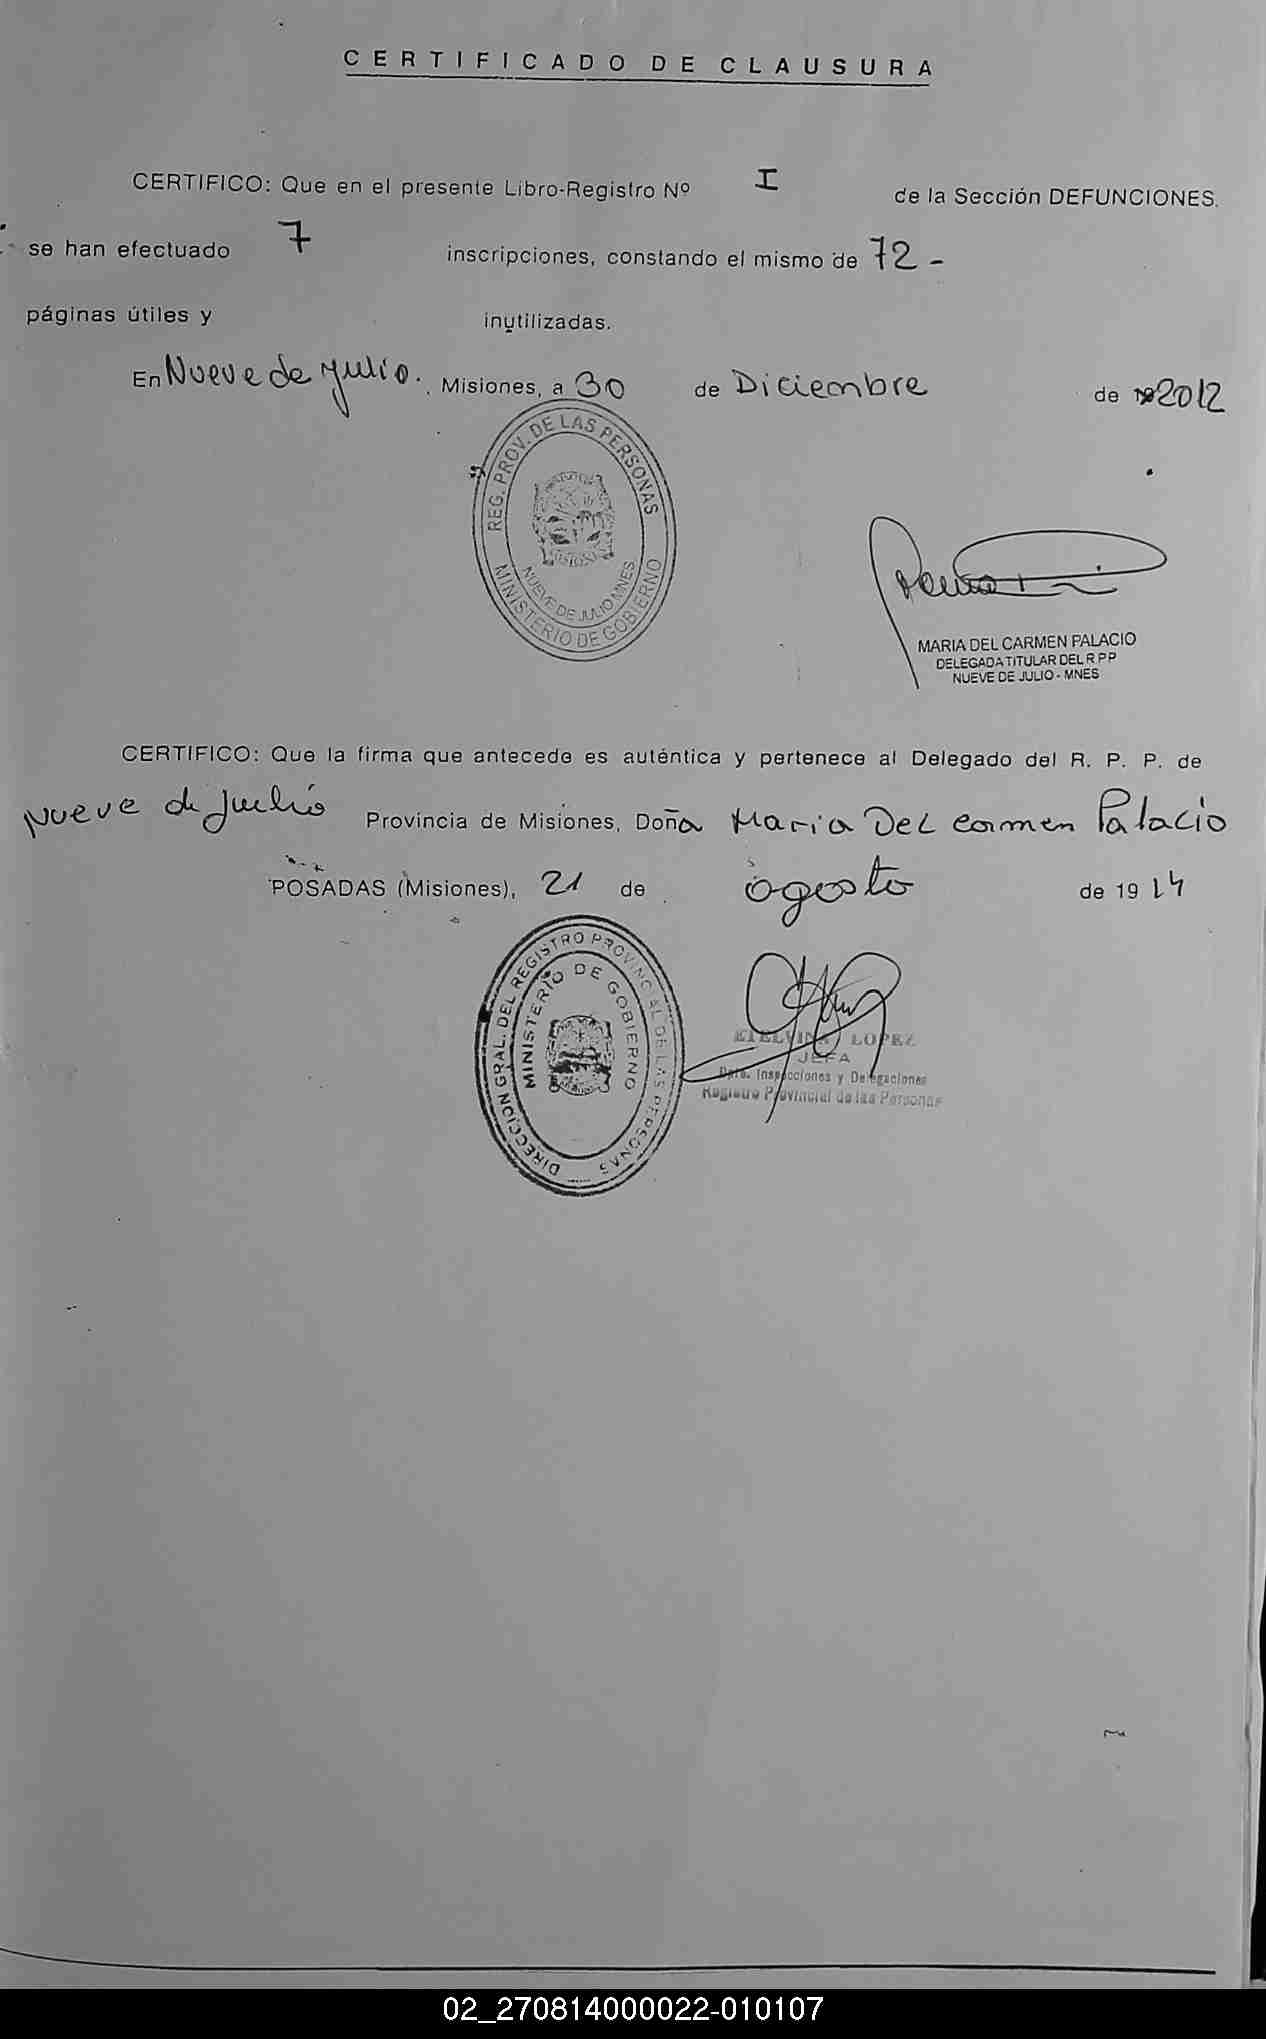 CERTIFICADO DE CLAUSURA
CERTIFICO: Que en el presente Libro-Registro Nº I de la Sección DEFUNCIONES.
se han efectuado 7 inscripciones, constando el mismo de 72 -
páginas útiles y inutilizadas.
En Nueve de Julio. Misiones, a 30 de Diciembre de 2012
REG. PROV. DE LAS PERSONAS
NUEVE DE JULIO MNES
MINISTERIO DE GOBIERNO
MARIA DEL CARMEN PALACIO
DELEGADA TITULAR DEL R P P
NUEVE DE JULIO - MNES
CERTIFICO: Que la firma que antecede es auténtica y pertenece al Delegado del R. P. P. de
Nueve de Julio Provincia de Misiones, Doña Maria Del Carmen Palacio
POSADAS (Misiones), 21 de agosto de 19 14
DIRECCION GRAL. DEL REGISTRO PROVINCIAL DE LAS PERSONAS
MINISTERIO DE GOBIERNO
ETELVINA LOPEZ
JEFA
Dpto. Inspecciones y Delegaciones
Registro Provincial de las Personas
02_270814000022-010107